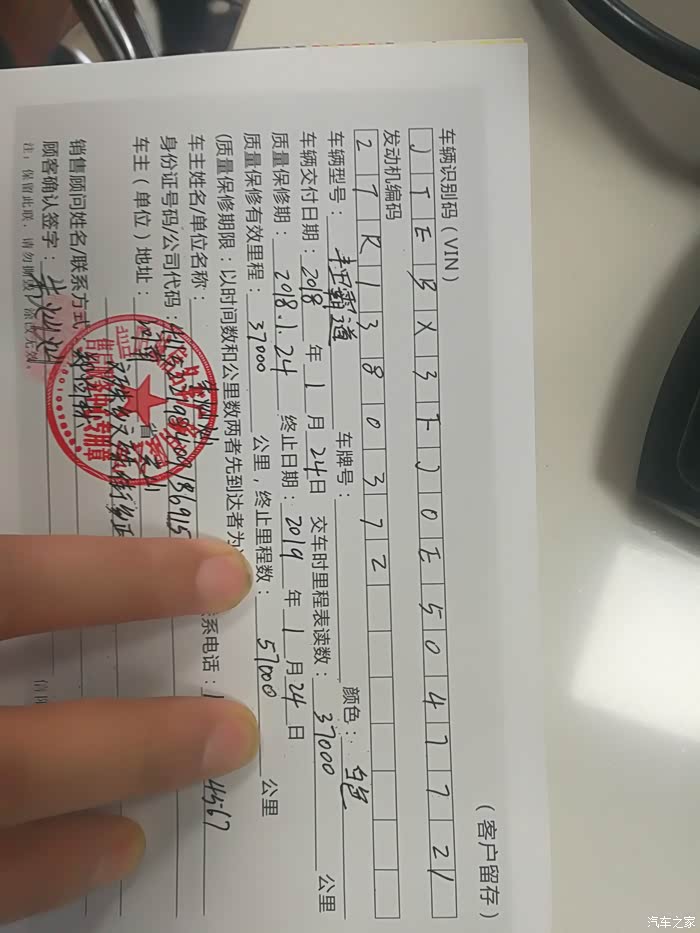 （客户留存）
车辆识别码（VIN）
JTEBX3FJ0E5047721
发动机编码
2TR1380372
车辆型号：丰田霸道 车牌号： 颜色：白色
车辆交付日期：2018年1月24日 交车时里程表读数：37000公里
质量保修期：2018.1.24 终止日期：2019年1月24日
质量保修有效里程：37000公里，终止里程数：57000公里
(质量保修期限：以时间数和公里数两者先到达者为
车主姓名/单位名称： 系电话：1 4567
身份证号码/公司代码：
车主（单位）地址：河南省
销售顾问姓名/联系方式
顾客确认签字：
注：保留此联，请勿撕毁，涂改无效。
汽车之家